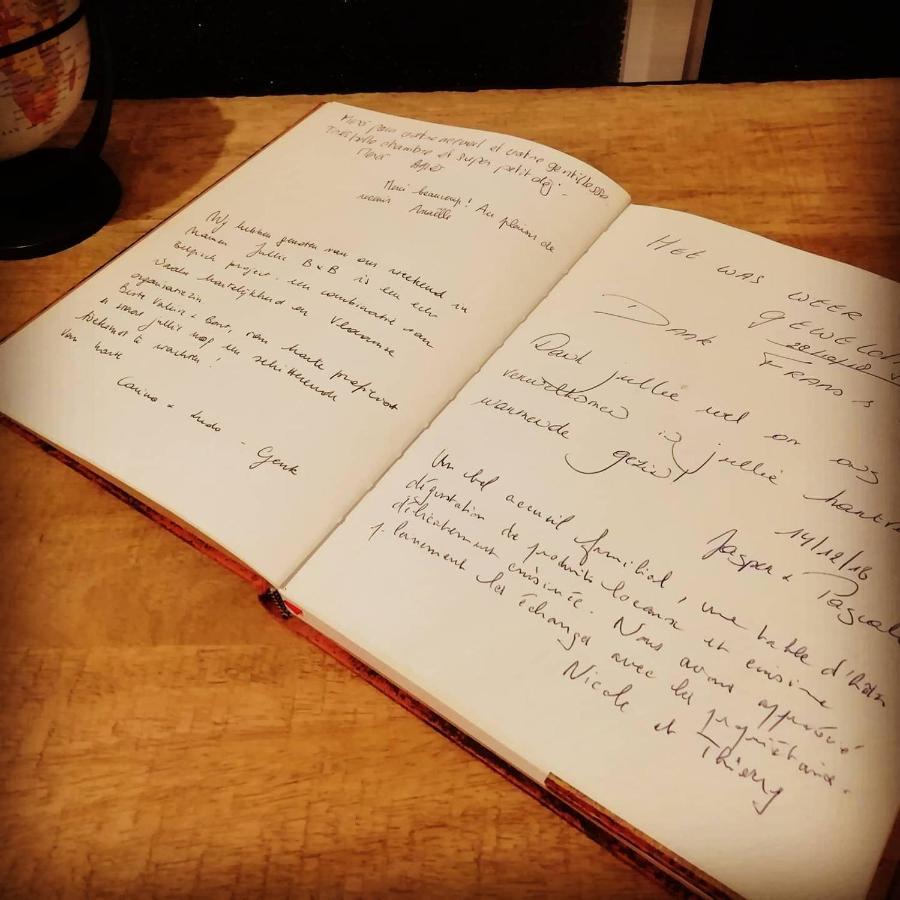 Merci pour votre accueil et votre gentillesse
Très belle chambre et super petit dej.
Merci
Merci beaucoup ! Au plaisir de
revenir Anaëlle
Wij hebben genoten van ons weekend in
Namen. Jullie B&B is een echt
Belgisch project: een combinatie van
Waalse hartelijkheid en Vlaamse
organisatiezin
Beste Valérie & Bart, van harte proficiat
& moge jullie nog een schitterende
toekomst te wachten !
Van harte
Carine & Ludo - Genk
HET WAS WEER
GEWELDIG
28/10/18
DANK FRANS &
Dank jullie wel om ons
verwelkomen in jullie
warmende gezin
14/12/18
Jasper & Pascale
Un bel accueil familial, une table d'hôtes
dégustation de produits locaux et cuisine
délicatement cuisinée. Nous avons apprécié
pleinement les échanges avec les propriétaires.
Nicole et Thierry